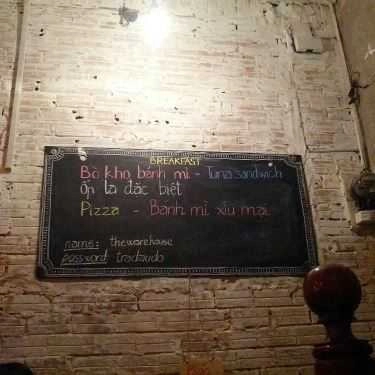 BREAKFAST
Bò kho bánh mì - Tuna sandwich
ốp la đặc biệt
Pizza - Bánh mì xíu mại
name: thewarehouse
password: tradaudo